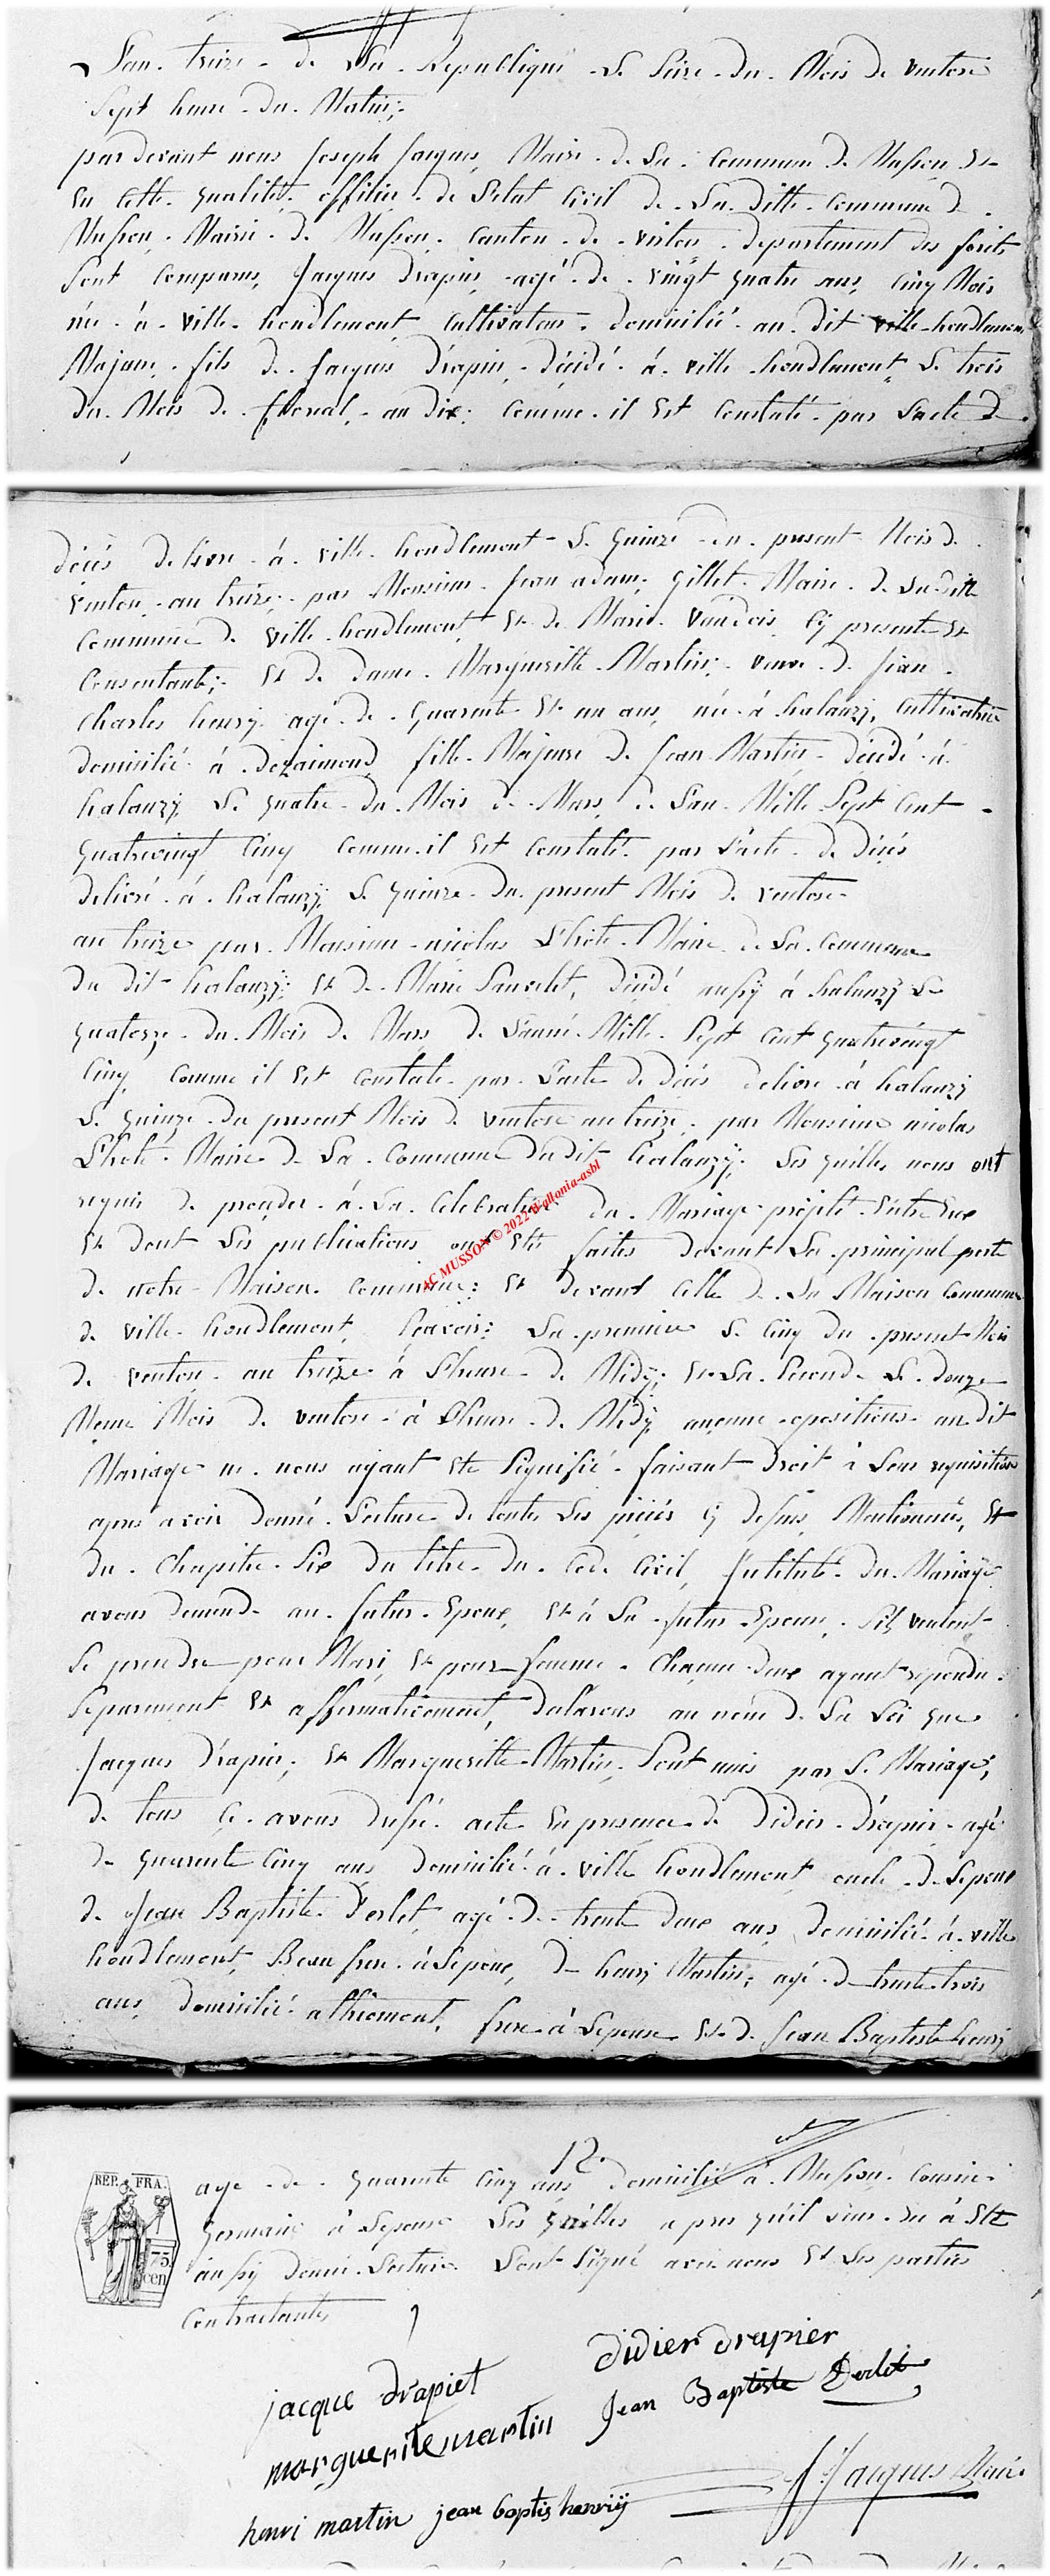 L'an treize de La Republique Le Seize du Mois de ventose
Sept heure du Matin;
pardevant nous Joseph Jacques Maire de La Commune de Musson Et
En Cette qualitée officier de L'etat Civil de La ditte Commune de
Musson Mairie de Musson Canton de virton departement des forets
Sont Comparus, Jacques Drapier agé de vingt quatre ans, Cinq Mois
née à ville houdlemont Cultivateur domicilié au dit ville houdlemont
Majeure fils de Jacques Drapier décédé à ville houdlemont Le trois
du Mois de floreal an dix: Comme il Est Constaté par L'acte de
décés delivré à ville houdlemont Le Quinze du present Mois de
ventose an treize par Monsieur Jean adam Gillet Maire de La ditte
Commune de ville houdlemont Et de Marie cy presente Et
Consentante; Et de dame Margueritte Martin; veuve de Jean
Charles henry agé de Quarente Et un ans, née à halanzÿ, Cultivatrice
domicilié à dezaimond fille Majeure de Jean Martin décédé à
halanzÿ Le quatre du Mois de Mars de L'an Mille Sept Cent
quatrevingt Cinq Comme il Est Constaté par L'acte de décés
delivré à halanzÿ Le Quinze du present Mois de ventose
an treize par Monsieur nicolas L'hote Maire de La Commune
du dit halanzÿ: Et de Marie décédé aussÿ à halanzÿ Le
quatorze du Mois de Mars de L'année Mille Sept Cent quatrevingt
Cinq Comme il Est Constate par L'acte de décés delivré à halanzÿ
Le Quinze du present Mois de ventose an treize par Monsieur nicolas
L'hote Maire de La Commune du dit halanzÿ: Les quilles nous ont
requis de proçeder à La Celebration du Mariage projeté Entre Eux
Et dont Les publications ont Eté faites devant La principal porte
de notre Maison Commune; Et devant Celle de La Maison Commune
de ville houdlemont Sçavoir: La premiere Le Cinq du present Mois
de ventose an treize à L'heure de Midÿ; Et La Seconde Le douze
Meme Mois de ventose à L'heure de Midÿ aucune opositions au dit
Mariage ne nous ayant Ete Signifié faisant Droit à Leur requisition
apres avoir donné Lecture de toutes Les pièces cy dessus Mentionnées, Et
du Chapitre Six du titre du Code Civil, Intitulé du Mariage
avons demendé au futur Epoux, Et à La futur Epouse, S'ils veulent
Se prendre pour Mari, Et pour femme Chacun deux ayant repondu
Separement Et affirmativement, declarons au nom de La Loi que
Jacques Drapier; Et Margueritte Martin, Sont unis par Le Mariage;
de tous Ce avons dressé acte En presence de Didier Drapier agé
de quarente Cinq ans domicilié à ville houdlemont oncle de L'epoux
de Jean Baptiste Derlet agé de trente deux ans domicilié à ville
houdlemont, Beau frere à L'epoux, de henry Martin; agé de trente trois
ans, domicilié athiemont, frere à L'epouse Et de Jean Baptiste henry
12.
age de quarente Cinq ans domicilié à Musson Cousin
Germain à L'epouse Les quilles apres quil Leur En à Eté
aussy donné Lecture Sont Signé avec nous Et Les parties
Contractantes
REP. FRA.
75
cen
didier drapier
jacque drapiet
Jean Baptiste Derlet
marguerite martin
J. Jacques Maire
henri martin jean baptis henrÿ
AC MUSSON © 2022 Wallonia-asbl